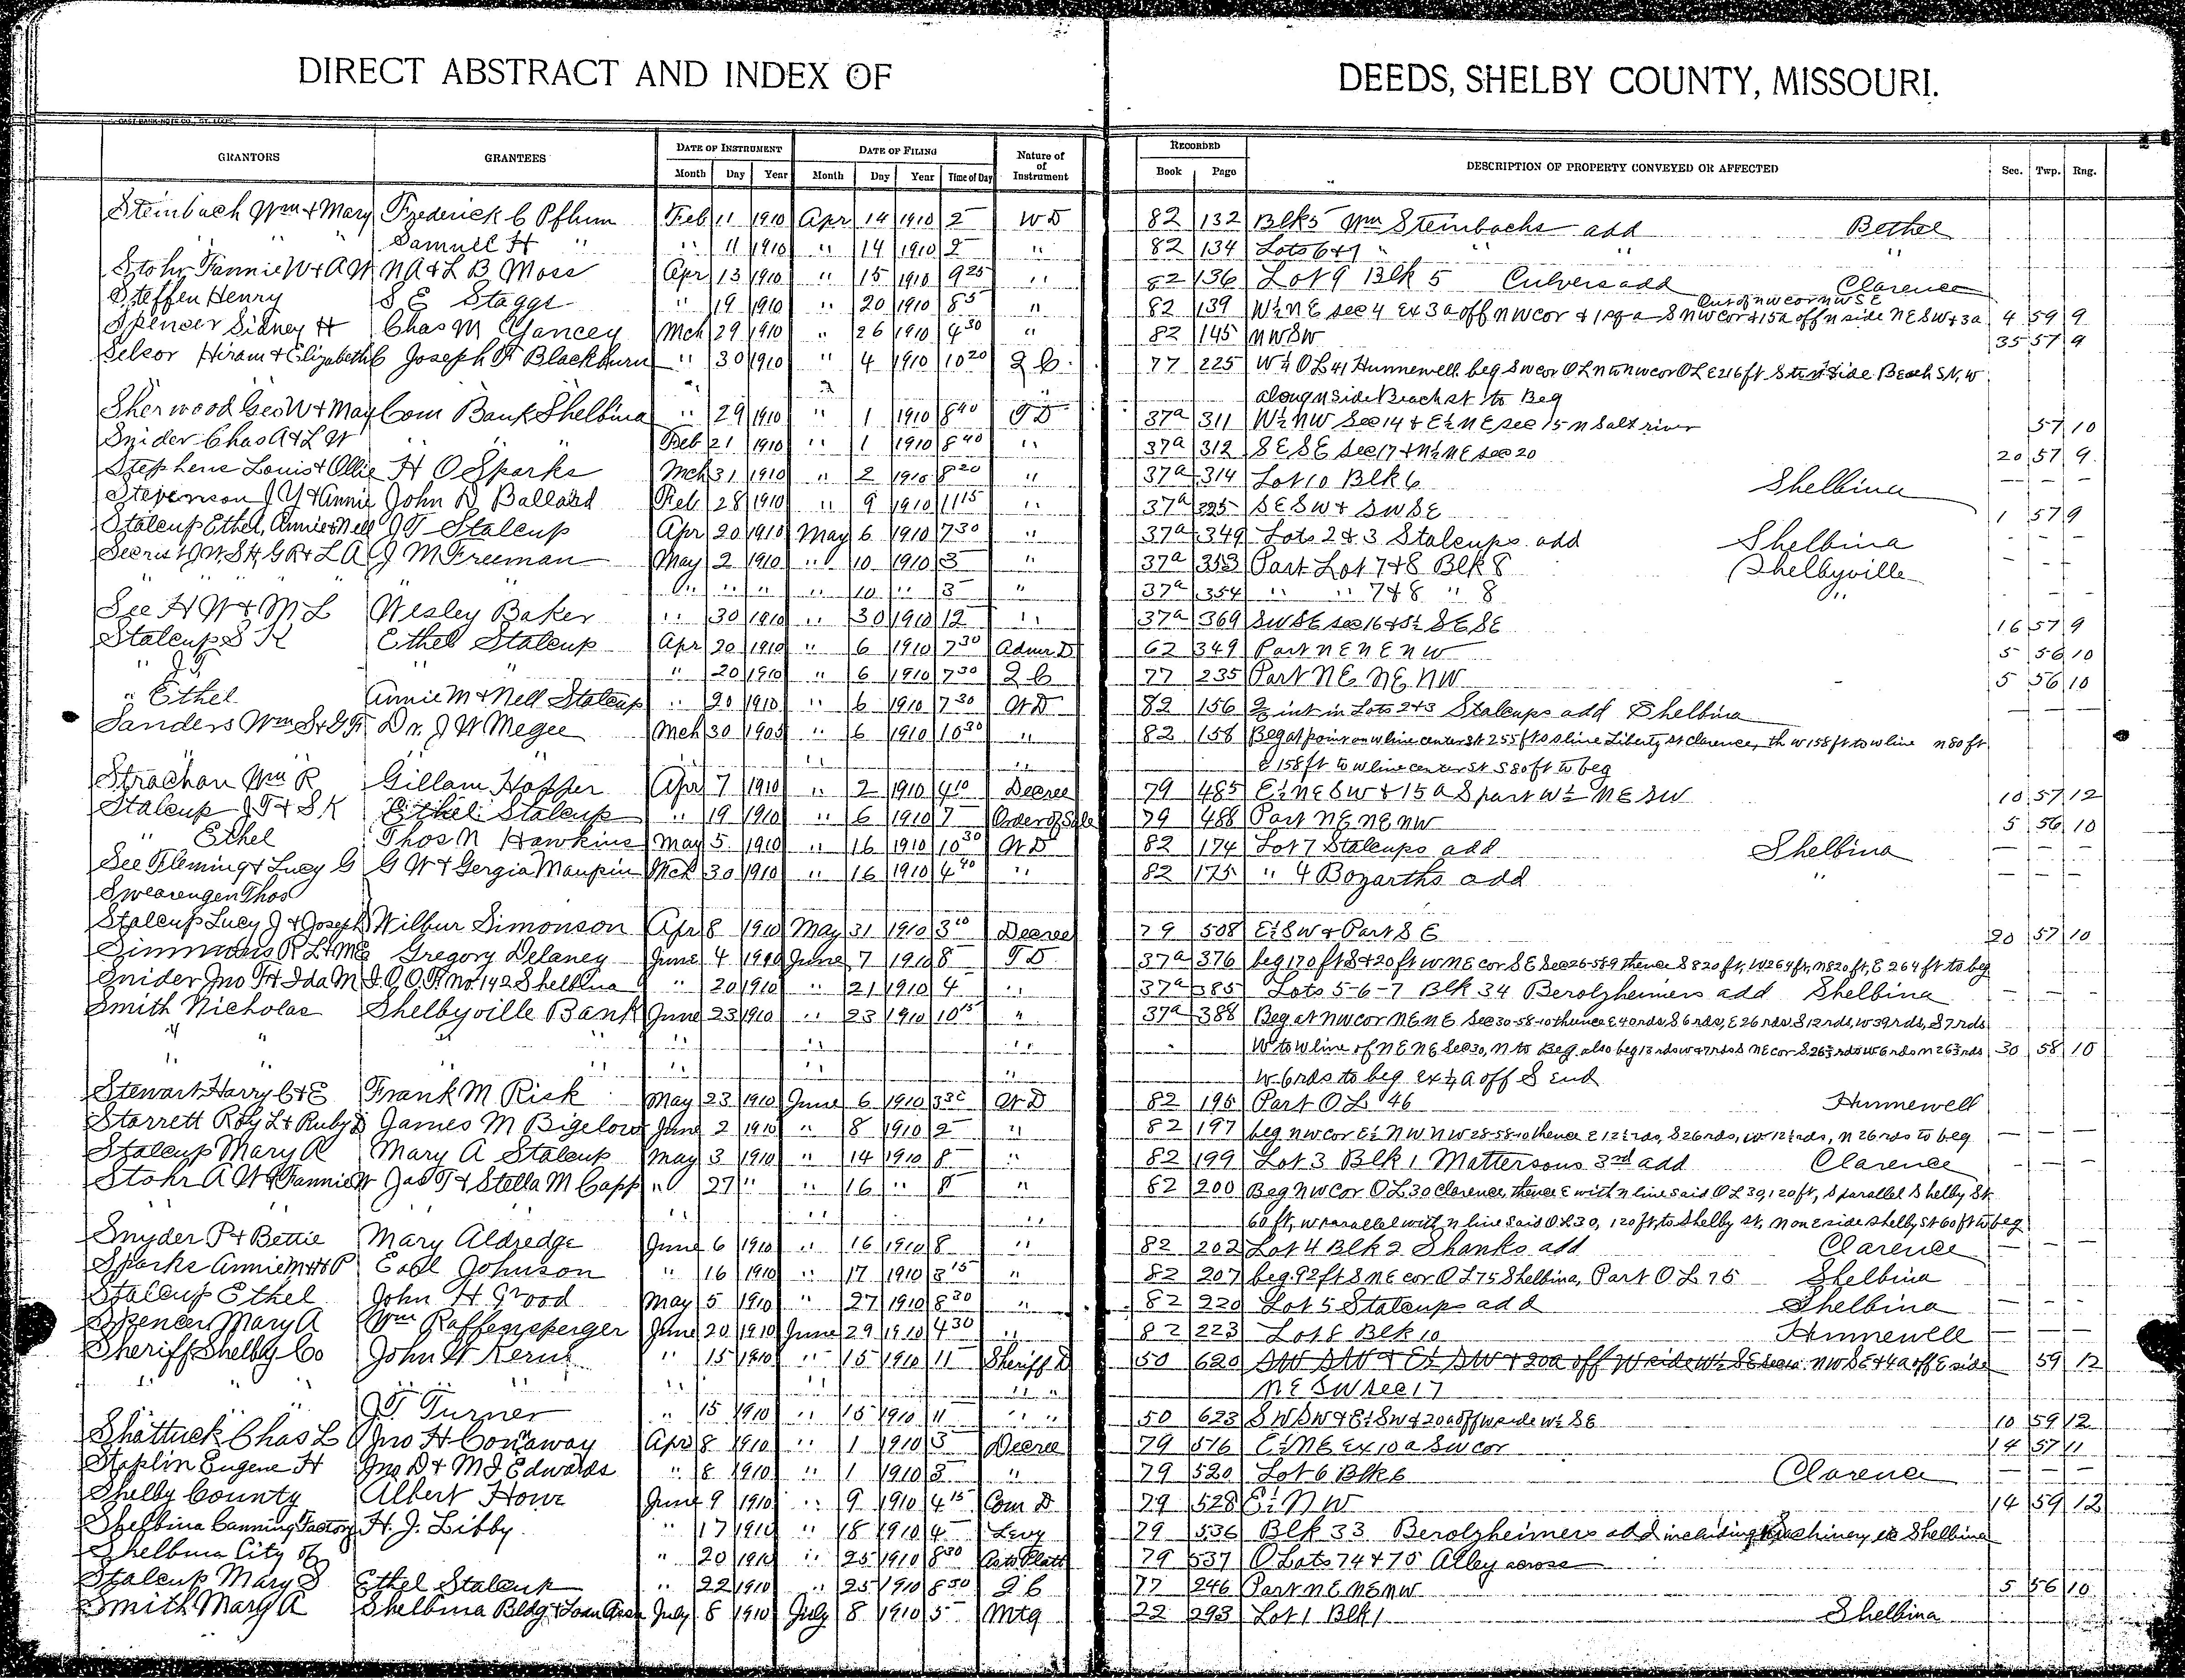 DIRECT ABSTRACT AND INDEX OF DEEDS, SHELBY COUNTY, MISSOURI.
GRANTORS GRANTEES DATE OF INSTRUMENT DATE OF FILING Nature of of Instrument RECORDED DESCRIPTION OF PROPERTY CONVEYED OR AFFECTED Sec. Twp. Rng.
Month Day Year Month Day Year Time of Day Book Page
Steinbach Wm & Mary Frederick C Pflum Feb 11 1910 Apr 14 1910 2 WD 82 132 Blk 5 Wm Steinbachs add Bethel
" " Samuel H " " 11 1910 " 14 1910 2 " 82 134 Lots 6 & 7 " " "
Stohr Fannie W & A W N A & L B Moss Apr 13 1910 " 15 1910 9 25 " 82 136 Lot 9 Blk 5 Culvers add Clarence
Steffen Henry S E Staggs " 19 1910 " 20 1910 8 5 " 82 139 W½ NE sec 4 ex 3a off NW cor & S NW cor & 15a off N side NE SW & 3a 4 59 9
Out of NW cor NW SE
Spencer Sidney H Chas M Yancey Mch 29 1910 " 26 1910 4 30 " 82 145 NW SW 35 57 9
Selsor Hiram & Elizabeth C Joseph F Blackburn " 30 1910 " 4 1910 10 20 Q C 77 225 W½ OL 41 Hunnewell beg SW cor OL N to NW cor OL E 216 ft S to N side Beach St, W
" " " along N side Beach st to Beg
Sherwood Geo W & May Com Bank Shelbina " 29 1910 " 1 1910 8 40 TD 37a 311 W½ NW Sec 14 & E½ NE sec 15 N Salt river 57 10
Snider Chas A & L W " " Feb 21 1910 " 1 1910 8 40 " 37a 312 SE SE Sec 17 & N½ NE sec 20 20 57 9
Stephens Louis & Ollie H O Sparks Mch 31 1910 " 2 1910 8 20 " 37a 314 Lot 10 Blk 6 Shelbina
Stevenson J Y & Annie John D Ballard Feb 28 1910 " 9 1910 11 15 " 37a 325 SE SW & SW SE 1 57 9
Stalcup Ethel, Annie & Nell J T Stalcup Apr 20 1910 May 6 1910 7 30 " 37a 349 Lots 2 & 3 Stalcups add Shelbina
Secrist J W, S H, G R & L A J M Freeman May 2 1910 " 10 1910 3 " 37a 353 Part Lot 7 & 8 Blk 8 Shelbyville
" " " " " " " " 10 " 3 " 37a 354 " " 7 & 8 " 8 "
See H W & M L Wesley Baker " 30 1910 " 30 1910 12 " 37a 369 SW SE sec 16 & S½ SE SE 16 57 9
Stalcup S K Ethel Stalcup Apr 20 1910 " 6 1910 7 30 Admr D 62 349 Part NE NE NW 5 56 10
" J T " " " 20 1910 " 6 1910 7 30 Q C 77 235 Part NE NE NW 5 56 10
" Ethel Annie M & Nell Stalcup " 20 1910 " 6 1910 7 30 WD 82 156 ⅔ int in Lots 2 & 3 Stalcups add Shelbina
Sanders Wm S & G F Dr. J W Megee Mch 30 1905 " 6 1910 10 30 " 82 158 Beg at point on W line center st 255 ft to S line Liberty St Clarence, th W 158 ft to W line N 80 ft
" " E 158 ft to W line center St S 80 ft to beg
Strachan Wm R Gillam Hopper Apr 7 1910 " 2 1910 4 10 Decree 79 485 E½ NE SW & 15 a S part W½ NE SW 10 57 12
Stalcup J T & S K Ethel Stalcup " 19 1910 " 6 1910 7 Order of Sale 79 488 Part NE NE NW 5 56 10
" Ethel Thos N Hawkins May 5 1910 " 16 1910 10 30 WD 82 174 Lot 7 Stalcups add Shelbina
See Fleming & Lucy G G W & Gergia Maupin Mch 30 1910 " 16 1910 4 40 " 82 175 " 4 Bozarths add "
Swearengen Thos
Stalcup Lucy J & Joseph Wilbur Simonson Apr 8 1910 May 31 1910 3 10 Decree 79 508 E½ SW & Part SE 20 57 10
Simmons R L & ME Gregory Delaney June 4 1910 June 7 1910 8 TD 37a 376 beg 170 ft S & 20 ft W NE cor SE Sec 26-56-9 thence S 820 ft, W 264 ft, N 820 ft, E 264 ft to beg
Snider Jno F & Ida M I.O.O.F. No 142 Shelbina " 20 1910 " 21 1910 4 " 37a 385 Lots 5-6-7 Blk 34 Berolzheimers add Shelbina
Smith Nicholas Shelbyville Bank June 23 1910 " 23 1910 10 15 " 37a 388 Beg at NW cor NE NE Sec 30-58-10 thence E 40 rds, S 6 rds, E 26 rds, S 12 rds, W 39 rds, S 7 rds
" " " " " " " W to W line of NE NE Sec 30, N to Beg also beg 13 rds W & 7 rds S NE cor S 26⅔ rds W 6 rds N 26⅔ rds 30 58 10
" " " " " " " W 6 rds to beg ex ½ a off S End
Stewart Harry C & E Frank M Risk May 23 1910 June 6 1910 3 30 WD 82 195 Part OL 46 Hunnewell
Starrett Roy L & Ruby D James M Bigelow June 2 1910 " 8 1910 2 " 82 197 beg NW cor E½ NW NW 28-58-10 thence E 12½ rds, S 26 rds, W 12½ rds, N 26 rds to beg
Stalcup Mary A Mary A Stalcup May 3 1910 " 14 1910 8 " 82 199 Lot 3 Blk 1 Mattersons 3rd add Clarence
Stohr A W & Fannie W Jas T & Stella M Capp " 27 " " 16 " 8 " 82 200 Beg NW Cor OL 30 Clarence, thence E with N line said OL 30, 120 ft, S parallel Shelby St
" " " 60 ft, W parallel with N line said OL 30, 120 ft, to Shelby st, N on E side Shelby St 60 ft to beg
Snyder P & Bettie Mary Aldredge June 6 1910 " 16 1910 8 " 82 202 Lot 4 Blk 2 Shanks add Clarence
Sparks Annie M & H P Earl Johnson " 16 1910 " 17 1910 8 15 " 82 207 beg 92 ft S NE cor OL 75 Shelbina, Part OL 75 Shelbina
Stalcup Ethel John H Wood May 5 1910 " 27 1910 8 30 " 82 220 Lot 5 Stalcups add Shelbina
Spencer Mary A Wm Raffensperger June 20 1910 June 29 1910 4 30 " 82 223 Lot 8 Blk 10 Hunnewell
Sheriff Shelby Co John W Kerns " 15 1910 " 15 1910 11 Sheriff D 50 620 SW SW & E½ SW & 20a off W side W½ SE NW SE & 4a off E side 59 12
" " " " " " " NE SW sec 17
" " J T Turner " 15 1910 " 15 1910 11 " " 50 623 SW SW & E½ SW & 20a off W side W½ SE 10 59 12
Shattuck Chas L Jno H Conaway Apr 8 1910 " 1 1910 3 Decree 79 516 E½ NE ex 10 a SW cor 14 57 11
Staplin Eugene H Jno D & M J Edwards " 8 1910 " 1 1910 3 " 79 520 Lot 6 Blk 6 Clarence
Shelby County Albert Howe June 9 1910 " 9 1910 4 15 Com D 79 528 E½ NW 14 59 12
Shelbina Canning Factory H. J. Libby " 17 1910 " 18 1910 4 Levy 79 536 Blk 33 Berolzheimers add including Machinery Shelbina
Shelbina City of " 20 1910 " 25 1910 8 30 79 537 O Lots 74 & 75 Alley across
Stalcup Mary S Ethel Stalcup " 22 1910 " 25 1910 8 30 Q C 77 246 Part NE NE NW 5 56 10
Smith Mary A Shelbina Bldg & Loan Assn July 8 1910 July 8 1910 5 Mtg 22 293 Lot 1 Blk 1 Shelbina